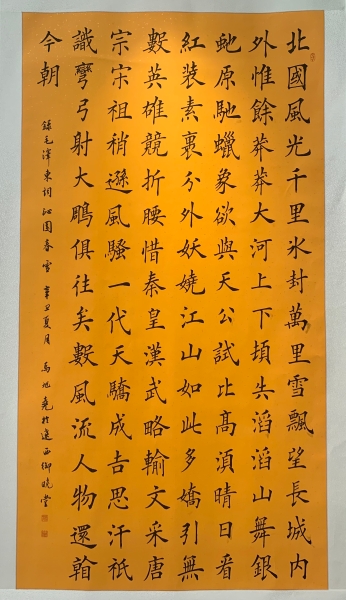 北國風光千里冰封萬里雪飄望長城內
外惟餘莽莽大河上下頓失滔滔山舞銀
虵原馳蠟象欲與天公試比高湏晴日看
紅裝素裹分外妖嬈江山如此多嬌引無
數英雄競折腰惜秦皇漢武略輸文采唐
宗宋祖稍遜風騷一代天驕成吉思汗祇
識彎弓射大鵰俱往矣數風流人物還看
今朝
錄毛澤東詞沁園春雪 辛丑夏月 馬旭堯於遼西御曉堂